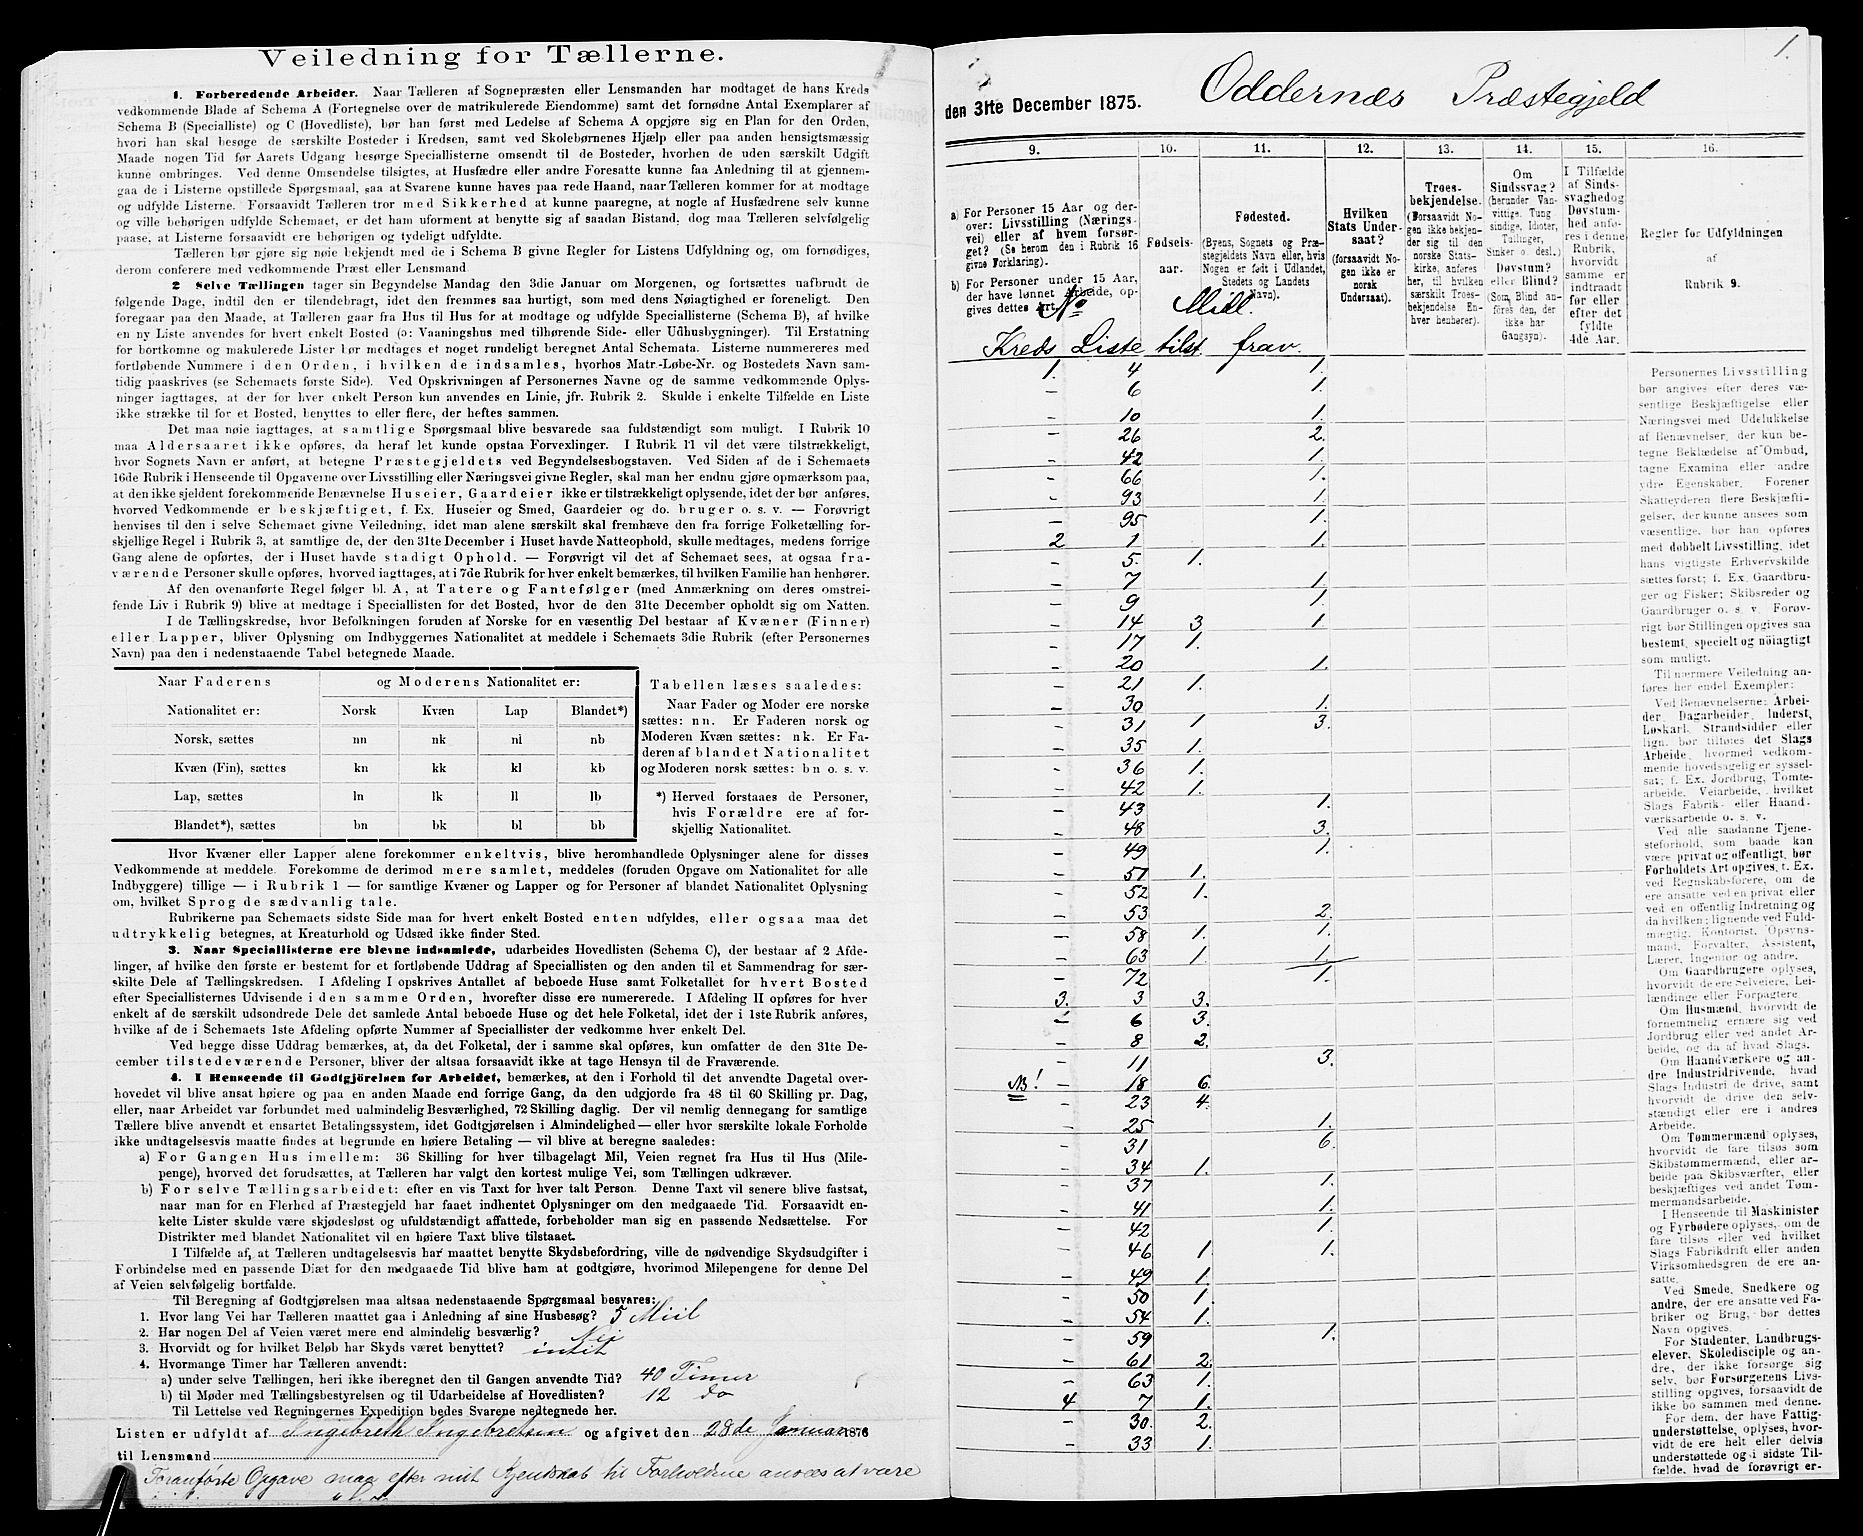 Veiledning for Tællerne.
1. Forberedende Arbeider. Naar Tælleren af Sognepræsten eller Lensmanden har modtaget de hans Kreds
vedkommende Blade af Schema A (Fortegnelse over de matrikulerede Eiendomme) samt det fornødne Antal Exemplarer af
Schema B (Specialliste) og C (Hovedliste), bør han først med Ledelse af Schema A opgjøre sig en Plan for den Orden,
hvori han skal besøge de særskilte Bosteder i Kredsen, samt ved Skolebørnenes Hjælp eller paa anden hensigtsmæssig
Maade nogen Tid før Aarets Udgang besørge Speciallisterne omsendt til de Bosteder, hvorhen de uden særskilt Udgift
kunne ombringes. Ved denne Omsendelse tilsigtes, at Husfædre eller andre Foresatte kunne faa Anledning til at gjennem-
gaa de i Listerne opstillede Spørgsmaal, saa at Svarene kunne haves paa rede Haand, naar Tælleren kommer for at modtage
og udfylde Listerne. Forsaavidt Tælleren tror med Sikkerhed at kunne paaregne, at nogle af Husfædrene selv kunne
og ville behørigen udfylde Schemaet, er det ham uforment at benytte sig af saadan Bistand, dog maa Tælleren selvfølgelig
paase, at Listerne forsaavidt ere behørigen og tydeligt udfyldte.
Tælleren bør gjøre sig nøie bekjendt med de i Schema B givne Regler for Listens Udfyldning og, om fornødiges,
derom conferere med vedkommende Præst eller Lensmand
2 Selve Tællingen tager sin Begyndelse Mandag den 3die Januar om Morgenen, og fortsættes uafbrudt de
følgende Dage, indtil den er tilendebragt, idet den fremmes saa hurtigt, som med dens Nøiagtighed er foreneligt. Den
foregaar paa den Maade, at Tælleren gaar fra Hus til Hus for at modtage og udfylde Speciallisterne (Schema B), af hvilke
en ny Liste anvendes for hvert enkelt Bosted (ɔ: Vaaningshus med tilhørende Side- eller Udhusbygninger). Til Erstatning
for bortkomne og makulerede Lister bør medtages et noget rundeligt beregnet Antal Schemata. Listerne nummereres med
fortløbende Nummere i den Orden, i hvilken de indsamles, hvorhos Matr.-Løbe-Nr. og Bostedets Navn sam-
tidig paaskrives (se Schemaets første Side). Ved Opskrivningen af Personernes Navne og de samme vedkommende Oplys-
ninger iagttages, at der for hver enkelt Person kun anvendes en Linie, jfr. Rubrik 2. Skulde i enkelte Tilfælde en Liste
ikke strække til for et Bosted, benyttes to eller flere, der heftes sammen.
Det maa nøie iagttages, at samtlige Spørgsmaal blive besvarede saa fuldstændigt som muligt. I Rubrik 10
maa Aldersaaret ikke opføres, da heraf let kunde opstaa Forvexlinger. I Rubrik 11 vil det være tilstrækkeligt,
hvor Sognets Navn er anført, at betegne Præstegjeldets ved Begyndelsesbogstaven. Ved Siden af de i Schemaets
16de Rubrik i Henseende til Opgaverne over Livsstilling eller Næringsvei givne Regler, skal man her endnu gjøre opmærksom paa,
at den ikke sjeldent forekommende Benævnelse Huseier, Gaardeier ikke er tilstrækkeligt oplysende, idet der bør anføres,
hvorved Vedkommende er beskjæftiget, f. Ex. Huseier og Smed, Gaardeier og do. bruger o. s. v. — Forøvrigt
henvises til den i selve Schemaet givne Veiledning, idet man alene særskilt skal fremhæve den fra forrige Folketælling for-
skjellige Regel i Rubrik 3, at samtlige de, der den 31te December i Huset havde Natteophold, skulle medtages, medens forrige
Gang alene de opførtes, der i Huset havde stadigt Ophold. — Forøvrigt vil det af Schemaet sees, at ogsaa fra-
værende Personer skulle opføres, hvorved iagttages, at i 7de Rubrik for hver enkelt bemærkes, til hvilken Familie han henhører.
Af den ovenanførte Regel følger bl. A, at Tatere og Fantefølger (med Anmærkning om deres omstrei-
fende Liv i Rubrik 9) blive at medtage i Speciallisten for det Bosted, hvor de den 31te December opholdt sig om Natten.
I de Tællingskredse, hvor Befolkningen foruden af Norske for en væsentlig Del bestaar af Kvæner (Finner)
eller Lapper, bliver Oplysning om Indbyggernes Nationalitet at meddele i Schemaets 3die Rubrik (efter Personernes
Navn) paa den i nedenstaaende Tabel betegnede Maade.
Naar Faderens og Moderens Nationalitet er:
Nationalitet er: Norsk Kvæn Lap Blandet*)
Norsk, sættes nn nk nl nb
Kvæn (Fin), sættes kn kk kl kb
Lap, sættes ln lk ll lb
Blandet*), sættes bn bk bl bb
Tabellen læses saaledes:
Naar Fader og Moder ere norske
sættes: nn. Er Faderen norsk og
Moderen Kvæn sættes: nk. Er Fa-
deren af blandet Nationalitet
og Moderen norsk sættes: bn o. s. v.
*) Herved forstaaes de Personer,
hvis Forældre ere af for-
skjellig Nationalitet.
Hvor Kvæner eller Lapper alene forekommer enkeltvis, blive heromhandlede Oplysninger alene for disses
Vedkommende at meddele. Forekomme de derimod mere samlet, meddeles (foruden Opgave om Nationalitet for alle
Indbyggere) tillige — i Rubrik 1 — for samtlige Kvæner og Lapper og for Personer af blandet Nationalitet Oplysning
om, hvilket Sprog de sædvanlig tale.
Rubrikerne paa Schemaets sidste Side maa for hvert enkelt Bosted enten udfyldes, eller ogsaa maa det
udtrykkelig betegnes, at Kreaturhold og Udsæd ikke finder Sted.
3. Naar Speciallisterne ere blevne indsamlede, udarbeides Hovedlisten (Schema C), der bestaar af 2 Afde-
linger, af hvilke den første er bestemt for et fortløbende Uddrag af Speciallisten og den anden til et Sammendrag for sær-
skilte Dele af Tællingskredsen. I Afdeling I opskrives Antallet af beboede Huse samt Folketallet for hvert Bosted
efter Speciallisternes Udvisende i den samme Orden, hvorefter disse ere numererede. I Afdeling II opføres for hver
enkelt af de særskilt udsondrede Dele det samlede Antal beboede Huse og det hele Folketal, idet der i 1ste Rubrik anføres,
hvilke af de i Schemaets 1ste Afdeling opførte Nummer af Speciallister der vedkomme hver enkelt Del.
Ved begge disse Uddrag bemærkes, at, da det Folketal, der i samme skal opføres, kun omfatter de den 31te De-
cember tilstedeværende Personer, bliver der altsaa forsaavidt ikke at tage Hensyn til de Fraværende.
4. I Henseende til Godtgjörelsen for Arbeidet, bemærkes, at den i Forhold til det anvendte Dagetal over-
hovedet vil blive ansat høiere og paa en anden Maade end forrige Gang, da den udgjorde fra 48 til 60 Skilling pr. Dag,
eller, naar Arbeidet var forbundet med ualmindelig Besværlighed, 72 Skilling daglig. Der vil nemlig dennegang for samtlige
Tællere blive anvendt et ensartet Betalingssystem, idet Godtgjørelsen i Almindelighed — eller hvor særskilte lokale Forholde
ikke undtagelsesvis maatte findes at begrunde en høiere Betaling — vil blive at beregne saaledes:
a) For Gangen Hus imellem: 36 Skilling for hver tilbagelagt Mil, Veien regnet fra Hus til Hus (Mile-
penge), hvorved det forudsættes, at Tælleren har valgt den kortest mulige Vei, som Tællingen udkræver.
b) For selve Tællingsarbeidet: efter en vis Taxt for hver talt Person. Denne Taxt vil senere blive fastsat,
naar man for en Flerhed af Præstegjeld har faaet indhentet Oplysninger om den medgaaede Tid. Forsaavidt en-
kelte Lister skulde være skjødesløst og ufuldstændigt affattede, forbeholder man sig en passende Nedsættelse. For
Distrikter med blandet Nationalitet vil en høiere Taxt blive tilstaaet.
I Tilfælde af, at Tælleren undtagelsesvis har maattet benytte Skydsbefordring, ville de nødvendige Skydsudgifter i
Forbindelse med en passende Diæt for den medgaaede Tid blive ham at godtgjøre, hvorimod Milepengene for denne Del
af Veien selvfølgelig bortfalde.
Til Beregning af Godtgjørelsen maa altsaa nedenstaaende Spørgsmaal besvares:
1. Hvor lang Vei har Tælleren maattet gaa i Anledning af sine Husbesøg? 5 Miil
2. Har nogen Del af Veien været mere end almindelig besværlig? Nei
3. Hvorvidt og for hvilket Beløb har Skyds været benyttet? intit
4. Hvormange Timer har Tælleren anvendt:
a) under selve Tællingen, heri ikke iberegnet den til Gangen anvendte Tid? 40 Timer
b) til Møder med Tællingsbestyrelsen og til Udarbeidelse af Hovedlisten? 12 do
Til Lettelse ved Regningernes Expedition bedes Svarene nedtegnede her.
Listen er udfyldt af Ingebreth Ingebretsen og afgivet den 28de Januar 1876
til Lensmand
Foranførte Opgave maa efter mit Kjendskab til Forholdene ansees at være
1.
den 31te December 1875. Oddernæs Præstegjeld
9. 10. 11. 12. 13. 14. 15. 16.
a) For Personer 15 Aar og der-
over: Livsstilling (Nærings-
vei) eller af hvem forsør-
get? (Se herom den i Rubrik 16
givne Forklaring).
b) For Personer under 15 Aar,
der have lønnet Arbeide, op-
gives dettes Art.
Fødsels-
aar.
Fødested.
(Byens, Sognets og Præ-
stegjeldets Navn eller, hvis
Nogen er født i Udlandet,
Stedets og Landets
Navn).
Hvilken
Stats Under-
saat?
(forsaavidt No-
gen ikke er
norsk
Undersaat).
Troes-
bekjendelse.
(Forsaavidt No-
gen ikke bekjen-
der sig til den
norske Stats-
kirke, anføres
her, til hvilken
særskilt Troes-
bekjendelse En-
hver henhører).
Om
Sindssvag?
(herunder Van-
vittige, Tung
sindige, Idioter,
Tullinger,
Sinker o. desl.)
Døvstum?
eller Blind?
(Som Blind an-
føres den, der
ikke har
Gangsyn).
I Tilfælde
af Sinds-
svaghed og
Døvstum-
hed anfø-
res i denne
Rubrik,
hvorvidt
samme er
indtraadt
før eller
efter det
fyldte
4de Aar.
Regler for Udfyldningen
af
Rubrik 9.
No Midl.
Kreds Liste tilst. frav.
1. 4 1.
— 6 1.
— 10 1.
— 26 2.
— 42 1.
— 66 1.
— 93 1.
— 95 1.
2 1 1.
— 5. 1.
— 7 1.
— 9 1.
— 14 3 1.
— 17 1.
— 20 1.
— 21 1.
— 30 1.
— 31 1 3.
— 35 1.
— 36 1.
— 42 1.
— 43 1.
— 48 3.
— 49 1.
— 51 1.
— 52 1.
— 53 2.
— 58 1. 1.
— 63 1. 1.
— 72 1.
3. 3 3.
— 6 3.
— 8 2.
— 11 3.
NB! — 18 6.
— 23 4.
— 25 1.
— 31 6.
— 34 1.
— 37 1.
— 41 1.
— 42 1.
— 46 1. 1.
— 49 1.
— 50 1.
— 54 1.
— 59 1.
— 61 2.
— 63 1.
4 7 1.
— 30. 2.
— 33 1.
Personernes Livsstilling
bør angives efter deres væ-
sentlige Beskjæftigelse eller
Næringsvei med Udelukkelse
af Benævnelser, der kun be-
tegne Beklædelse af Ombud,
tagne Examina eller andre
ydre Egenskaber. Forener
Skatteyderen flere Beskjæfti-
gelser, der kunne ansees som
væsentlige, bør han opføres
med dobbelt Livsstilling, idet
hans vigtigste Erhvervskilde
sættes først; f. Ex. Gaardbru-
ger og Fisker; Skibsreder og
Gaardbruger o. s. v. Forøv-
rigt bør Stillingen opgives saa
bestemt, specielt og nöiagtigt
som muligt.
Til nærmere Veiledning an-
føres her endel Exempler:
Ved Benævnelserne: Arbei-
der, Dagarbeider, Inderst,
Løskarl, Strandsidder eller
lign. bør tilføies det Slags
Arbeide, hvormed vedkom-
mende hovedsagelig er syssel-
sat; f. Ex. Jordbrug, Tomte-
arbeide, Veiarbeide, hvilket
Slags Fabrik- eller Haand-
værksarbeide o. s. v.
Ved alle saadanne Tjene-
steforhold, som baade kan
være privat og offentligt, bør
Forholdets Art opgives, t. Ex.
ved Regnskabsførere, om de
ere ansatte ved en privat eller
ved en offentlig Indretning og
da hvilken; lignende ved Fuld-
mægtig, Kontorist, Opsyns-
mand, Forvalter, Assistent,
Lærer, Ingeniør og andre.
Om Gaardbrugere oplyses,
hvorvidt de ere Selveiere, Lei-
lændinge eller Forpagtere
Om Husmænd, hvorvidt de
fornemmelig ernære sig ved
Jordbrug eller ved andet Ar-
beide, og da af hvad Slags.
Om Haandværkere og an-
dre Industridrivende, hvad
Slags Industri de drive, samt
hvorvidt de drive den selv-
stændigt eller ere i andres
Arbeide.
Om Tømmermænd oplyses,
hvorvidt de fare tilsøs som
Skibstømmermænd, eller ar-
beide paa Skibsværfter, eller
beskjæftiges ved andet Tøm-
mermandsarbeide.
I Henseende til Maskinister
og Fyrbødere oplyses, om de
fare tilsøs eller ved hvilket
Slags Fabrikdrift eller anden
Virksomhedsgren de ere an-
satte.
Ved Smede, Snedkere og
andre, der ere ansatte ved Fa-
briker og Brug, bør dettes
Navn opgives.
For Studenter, Landbrugs-
elever, Skoledisciple og an-
dre, der ikke forsørge sig
selv, bør Forsørgerens Livs-
stilling opgives, forsaavidt de
ikke bo sammen med denne.
For dem, der have Fattig-
understøttelse, oplyses, hvor-
vidt de ere helt eller delvis
understøttede og i sidste Til-
fælde, hvad de forøvrigt er-